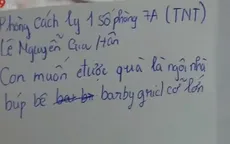 Phòng Cách ly 1 Số phòng 7A (TNT)
Lê Nguyễn Gia Hân
Con muốn được quà là ngôi nhà
búp bê barby gnicl cỡ lớn